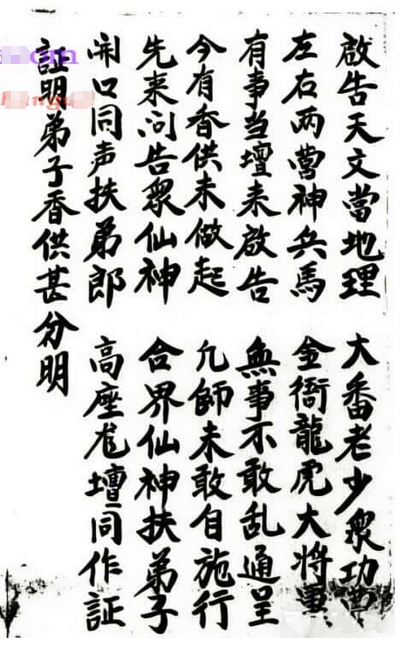 啟告天文當地理 大番老少眾功曹
左右两營神兵馬 金衙龍虎大将軍
有事当壇来啟告 無事不敢乱通呈
今有香供未做起 凡師未敢自施行
先来问告眾仙神 合界仙神扶弟子
開口同声扶弟郎 高座尨壇同作証
証明弟子香供甚分明